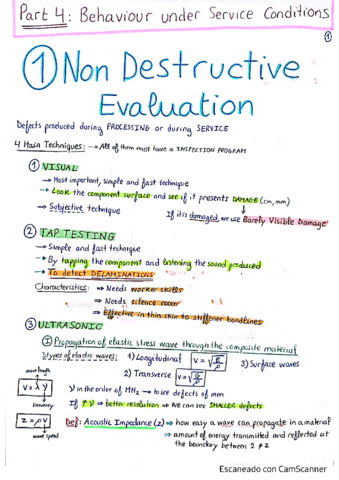 Part 4: Behaviour under Service Conditions
1
① Non Destructive
Evaluation
Defects produced during PROCESSING or during SERVICE
4 Main Techniques: → All of them must have a INSPECTION PROGRAM
① VISUAL
→ Most important, simple and fast technique
→ Look the component surface and see if it presents DAMAGE (cm, mm)
→ Subjective technique
If it is damaged, we use "Barely Visible Damage"
② TAP TESTING
→ Simple and fast technique
→ By tapping the component and listening the sound produced
→ To detect DELAMINATIONS
Characteristics: ⇒ Needs worker skills
⇒ Needs silence room
⇒ Effective in thin skin to stiffener bondlines
③ ULTRASONIC
① Propagation of elastic stress wave through the composite material
3 types of elastic waves: 1) Longitudinal
3) Surface waves
2) Transverse
wave length
V = λ γ
frequency
γ in the order of MHz → to see defects of mm
If ↑γ ⇒ better resolution ⇒ we can see SMALLER defects
z = ρ v
wave speed
Def: Acoustic Impedance (z) ⇒ how easy a wave can propagate in a material
⇒ amount of energy transmitted and reflected at
the boundary between 2 ≠ z
Escaneado con CamScanner